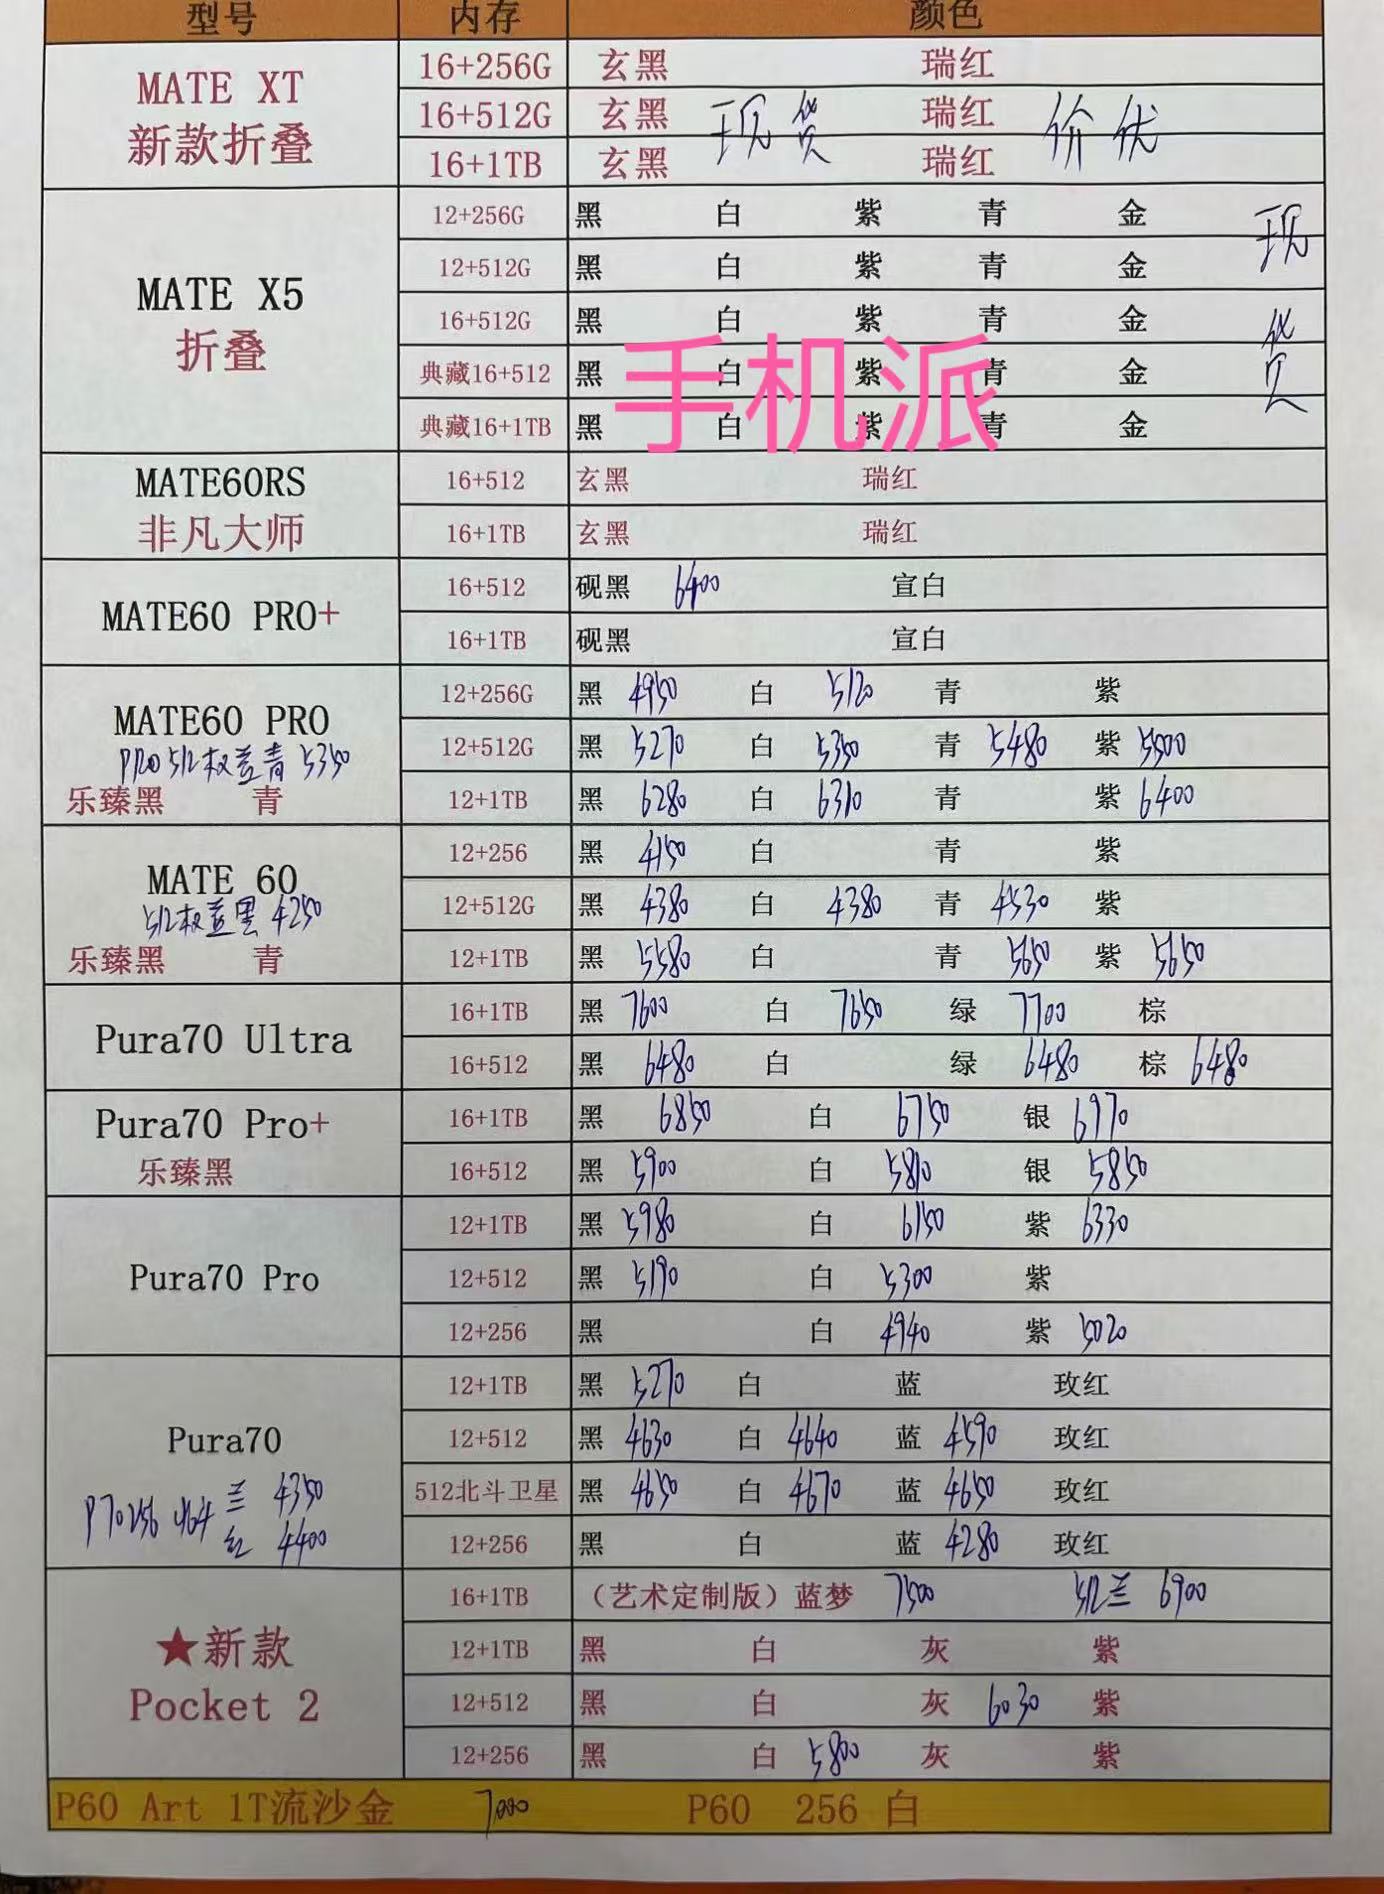 型号 内存 颜色
MATE XT 新款折叠
16+256G 玄黑 瑞红
16+512G 玄黑 现货 瑞红 价优
16+1TB 玄黑 瑞红
MATE X5 折叠
12+256G 黑 白 紫 青 金 现货
12+512G 黑 白 紫 青 金
16+512G 黑 白 紫 青 金
手机派
典藏16+512 黑 白 紫 青 金
典藏16+1TB 黑 白 紫 青 金
MATE60RS 非凡大师
16+512 玄黑 瑞红
16+1TB 玄黑 瑞红
MATE60 PRO+
16+512 砚黑 6400 宣白
16+1TB 砚黑 宣白
MATE60 PRO
PRO 512权益青 5350
乐臻黑 青
12+256G 黑 4950 白 5120 青 紫
12+512G 黑 5270 白 5350 青 5480 紫 5500
12+1TB 黑 6280 白 6310 青 紫 6400
MATE 60
512权益黑 4250
乐臻黑 青
12+256 黑 4150 白 青 紫
12+512G 黑 4380 白 4380 青 4530 紫
12+1TB 黑 5580 白 青 5650 紫 5650
Pura70 Ultra
16+1TB 黑 7600 白 7650 绿 7700 棕
16+512 黑 6480 白 绿 6480 棕 6480
Pura70 Pro+
乐臻黑
16+1TB 黑 6850 白 6750 银 6970
16+512 黑 5900 白 5810 银 5850
Pura70 Pro
12+1TB 黑 5980 白 6150 紫 6330
12+512 黑 5190 白 5300 紫
12+256 黑 白 4940 紫 5020
Pura70
P70 256 兰 4350
红 4400
12+1TB 黑 5270 白 蓝 玫红
12+512 黑 4630 白 4640 蓝 4590 玫红
512北斗卫星 黑 4650 白 4670 蓝 4650 玫红
12+256 黑 白 蓝 4280 玫红
★新款
Pocket 2
16+1TB （艺术定制版）蓝梦 7500 512兰 6900
12+1TB 黑 白 灰 紫
12+512 黑 白 灰 6030 紫
12+256 黑 白 5800 灰 紫
P60 Art 1T流沙金 7000 P60 256 白